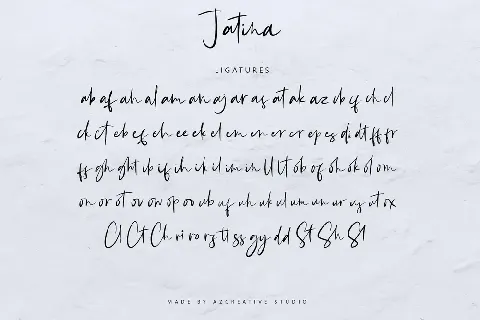 Jatina
LIGATURES
ab af ah al am an aj ar as at ak az cb cf ch cl
ck ct eb ef eh ee ek el em en er cr ep es di dt ff fr
fs gh ght ib if ih ik il im in ll lt ob of oh ok ol om
on or ot ov ow op oo ub uf uh uk ul um un ur us ut ox
Cl Ct Ch ri ro rs tl ss gy dd St Sh Sl
MADE BY AZCREATIVE STUDIO